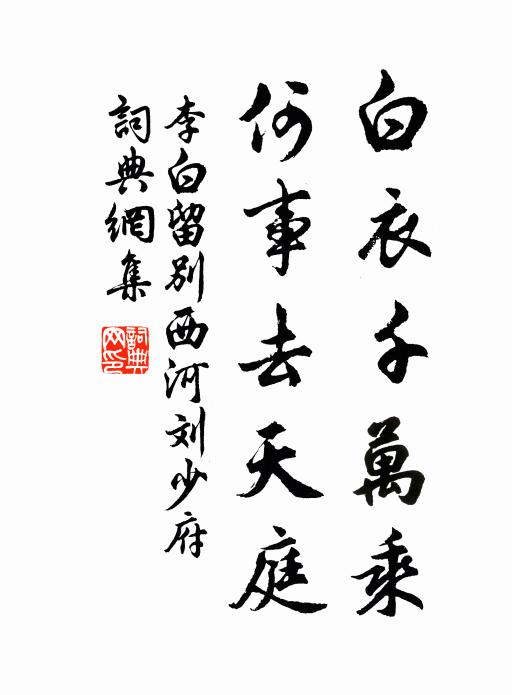 白衣千萬乘
何事去天庭
李白留别西河刘少府
詞典網集
詞典
网印